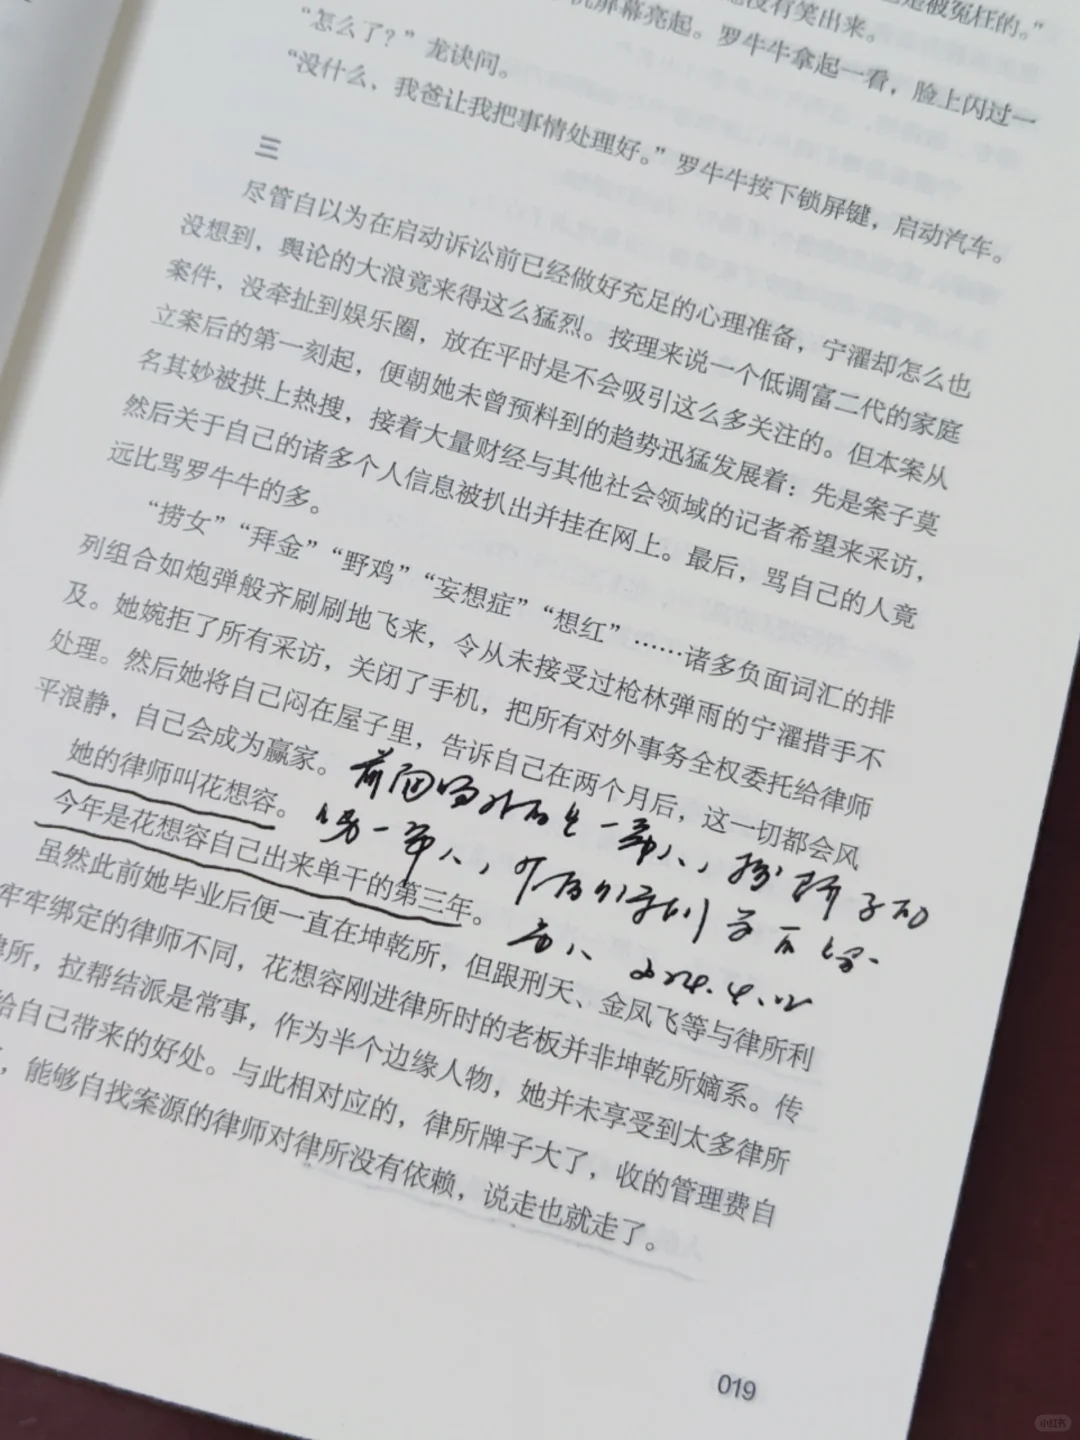 是被冤枉的。”
没有笑出来。
机屏幕亮起。罗牛牛拿起一看，脸上闪过一
“怎么了？”龙诀问。
“没什么，我爸让我把事情处理好。”罗牛牛按下锁屏键，启动汽车。
三
尽管自以为在启动诉讼前已经做好充足的心理准备，宁濯却怎么也
没想到，舆论的大浪竟来得这么猛烈。按理来说一个低调富二代的家庭
案件，没牵扯到娱乐圈，放在平时是不会吸引这么多关注的。但本案从
立案后的第一刻起，便朝她未曾预料到的趋势迅猛发展着：先是案子莫
名其妙被拱上热搜，接着大量财经与其他社会领域的记者希望来采访，
然后关于自己的诸多个人信息被扒出并挂在网上。最后，骂自己的人竟
远比骂罗牛牛的多。
“捞女”“拜金”“野鸡”“妄想症”“想红”……诸多负面词汇的排
列组合如炮弹般齐刷刷地飞来，令从未接受过枪林弹雨的宁濯措手不
及。她婉拒了所有采访，关闭了手机，把所有对外事务全权委托给律师
处理。然后她将自己闷在屋子里，告诉自己在两个月后，这一切都会风
平浪静，自己会成为赢家。
她的律师叫花想容。
今年是花想容自己出来单干的第三年。
虽然此前她毕业后便一直在坤乾所，但跟刑天、金凤飞等与律所利
牢牢绑定的律师不同，花想容刚进律所时的老板并非坤乾所嫡系。传
律所，拉帮结派是常事，作为半个边缘人物，她并未享受到太多律所
给自己带来的好处。与此相对应的，律所牌子大了，收的管理费自
，能够自找案源的律师对律所没有依赖，说走也就走了。
019
小红书